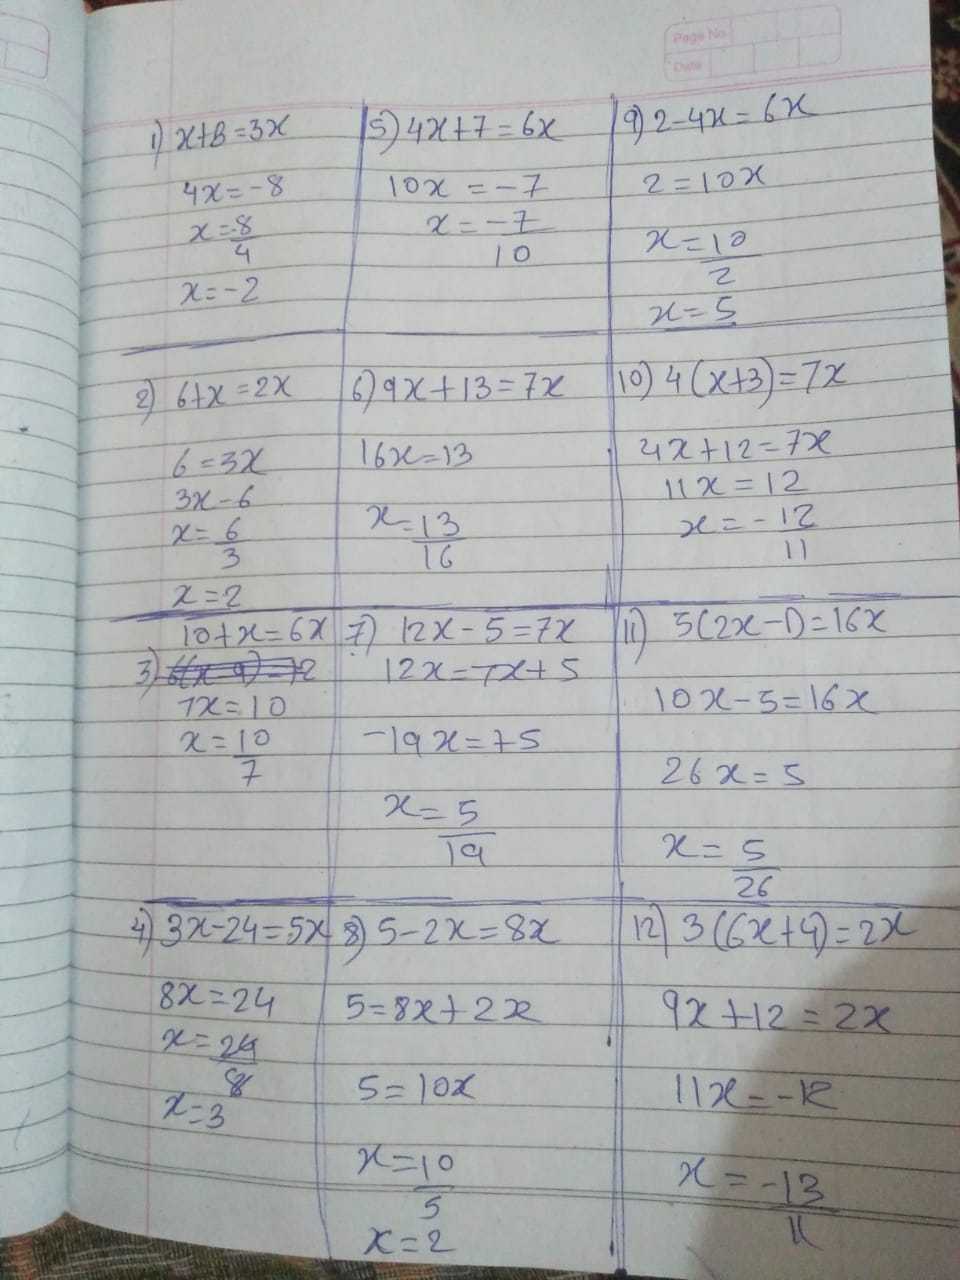 Page No.
Date
1) x+8=3x
4x=-8
x=-8/4
x=-2
2) 6+x=2x
6=3x
3x-6
x=6/3
x=2
10+x=6x
3)
7x=10
x=10/7
4) 3x-24=5x
8x=24
x=24/8
x=3
5) 4x+7=6x
10x=-7
x=-7/10
6) 9x+13=7x
16x=13
x=13/16
7) 12x-5=7x
12x=7x+5
-19x=+5
x=5/19
8) 5-2x=8x
5=8x+2x
5=10x
x=10/5
x=2
9) 2-4x=6x
2=10x
x=10/2
x=5
10) 4(x+3)=7x
4x+12=7x
11x=12
x=-12/11
11) 5(2x-1)=16x
10x-5=16x
26x=5
x=5/26
12) 3(6x+4)=2x
9x+12=2x
11x=-12
x=-13/11